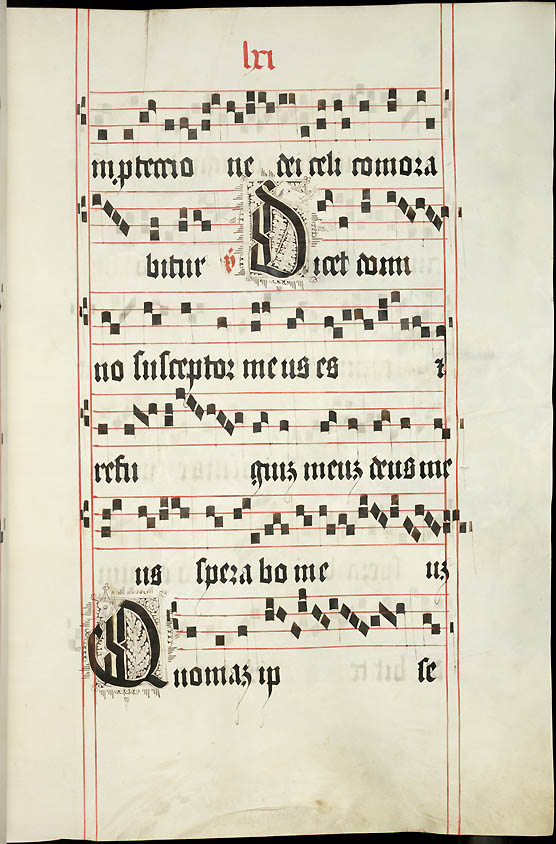 lxi
in ptectio ne dei celi comora
bitur ℣ Dicet domi
no susceptor me us es ⁊
refu giuʒ meuʒ deus me
us spera bo in e uʒ
Quoniaʒ ip se